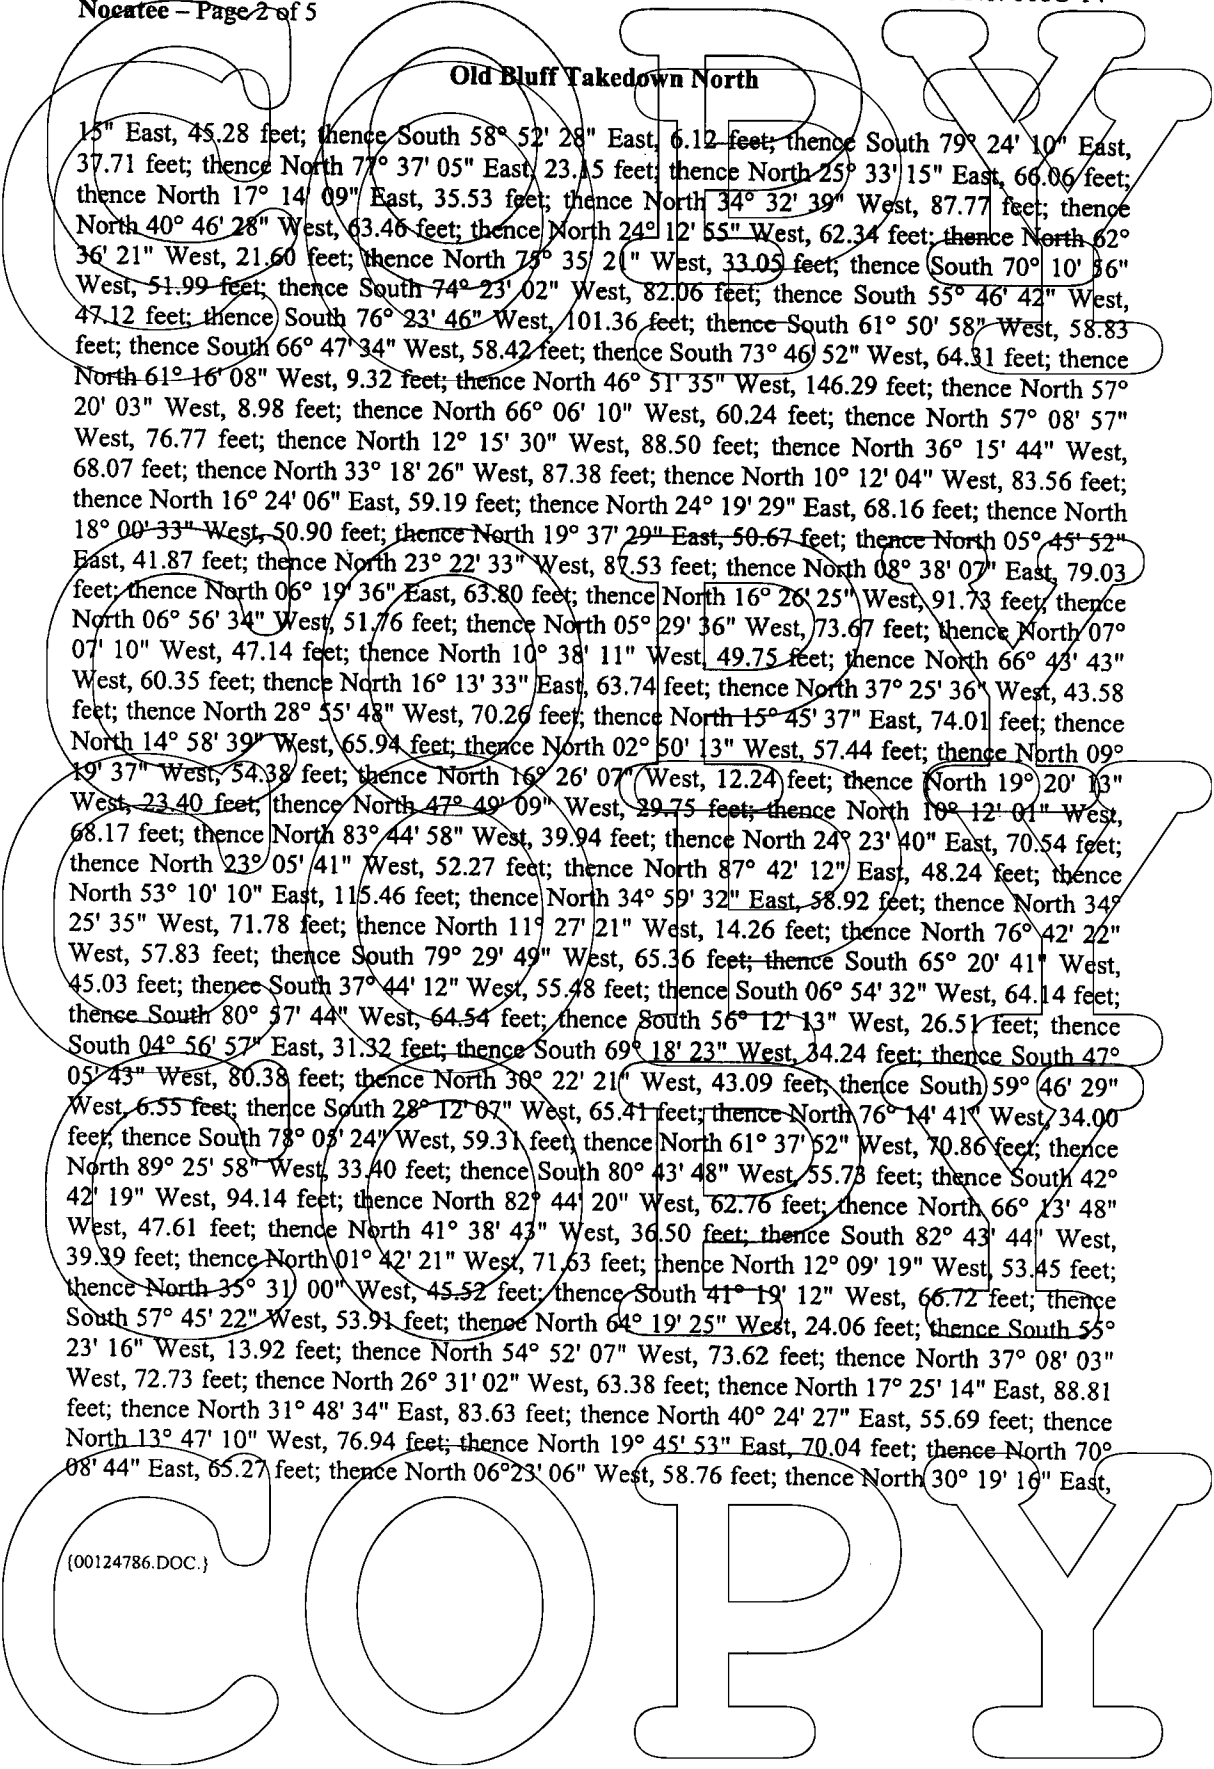 Nocatee – Page 2 of 5
Old Bluff Takedown North
15" East, 45.28 feet; thence South 58° 52' 28" East, 6.12 feet; thence South 79° 24' 10" East,
37.71 feet; thence North 77° 37' 05" East, 23.15 feet; thence North 25° 33' 15" East, 66.06 feet;
thence North 17° 14' 09" East, 35.53 feet; thence North 34° 32' 39" West, 87.77 feet; thence
North 40° 46' 28" West, 63.46 feet; thence North 24° 12' 55" West, 62.34 feet; thence North 62°
36' 21" West, 21.60 feet; thence North 75° 35' 21" West, 33.05 feet; thence South 70° 10' 56"
West, 51.99 feet; thence South 74° 23' 02" West, 82.06 feet; thence South 55° 46' 42" West,
47.12 feet; thence South 76° 23' 46" West, 101.36 feet; thence South 61° 50' 58" West, 58.83
feet; thence South 66° 47' 34" West, 58.42 feet; thence South 73° 46' 52" West, 64.31 feet; thence
North 61° 16' 08" West, 9.32 feet; thence North 46° 51' 35" West, 146.29 feet; thence North 57°
20' 03" West, 8.98 feet; thence North 66° 06' 10" West, 60.24 feet; thence North 57° 08' 57"
West, 76.77 feet; thence North 12° 15' 30" West, 88.50 feet; thence North 36° 15' 44" West,
68.07 feet; thence North 33° 18' 26" West, 87.38 feet; thence North 10° 12' 04" West, 83.56 feet;
thence North 16° 24' 06" East, 59.19 feet; thence North 24° 19' 29" East, 68.16 feet; thence North
18° 00' 33" West, 50.90 feet; thence North 19° 37' 29" East, 50.67 feet; thence North 05° 45' 52"
East, 41.87 feet; thence North 23° 22' 33" West, 87.53 feet; thence North 08° 38' 07" East, 79.03
feet; thence North 06° 19' 36" East, 63.80 feet; thence North 16° 26' 25" West, 91.73 feet; thence
North 06° 56' 34" West, 51.76 feet; thence North 05° 29' 36" West, 73.67 feet; thence North 07°
07' 10" West, 47.14 feet; thence North 10° 38' 11" West, 49.75 feet; thence North 66° 43' 43"
West, 60.35 feet; thence North 16° 13' 33" East, 63.74 feet; thence North 37° 25' 36" West, 43.58
feet; thence North 28° 55' 48" West, 70.26 feet; thence North 15° 45' 37" East, 74.01 feet; thence
North 14° 58' 39" West, 65.94 feet; thence North 02° 50' 13" West, 57.44 feet; thence North 09°
19' 37" West, 54.38 feet; thence North 16° 26' 07" West, 12.24 feet; thence North 19° 20' 13"
West, 23.40 feet; thence North 47° 49' 09" West, 29.75 feet; thence North 10° 12' 01" West,
68.17 feet; thence North 83° 44' 58" West, 39.94 feet; thence North 24° 23' 40" East, 70.54 feet;
thence North 23° 05' 41" West, 52.27 feet; thence North 87° 42' 12" East, 48.24 feet; thence
North 53° 10' 10" East, 115.46 feet; thence North 34° 59' 32" East, 58.92 feet; thence North 34°
25' 35" West, 71.78 feet; thence North 11° 27' 21" West, 14.26 feet; thence North 76° 42' 22"
West, 57.83 feet; thence South 79° 29' 49" West, 65.36 feet; thence South 65° 20' 41" West,
45.03 feet; thence South 37° 44' 12" West, 55.48 feet; thence South 06° 54' 32" West, 64.14 feet;
thence South 80° 57' 44" West, 64.54 feet; thence South 56° 12' 13" West, 26.51 feet; thence
South 04° 56' 57" East, 31.32 feet; thence South 69° 18' 23" West, 34.24 feet; thence South 47°
05' 43" West, 80.38 feet; thence North 30° 22' 21" West, 43.09 feet; thence South 59° 46' 29"
West, 6.55 feet; thence South 28° 12' 07" West, 65.41 feet; thence North 76° 14' 41" West, 34.00
feet; thence South 78° 05' 24" West, 59.31 feet; thence North 61° 37' 52" West, 70.86 feet; thence
North 89° 25' 58" West, 33.40 feet; thence South 80° 43' 48" West, 55.73 feet; thence South 42°
42' 19" West, 94.14 feet; thence North 82° 44' 20" West, 62.76 feet; thence North 66° 13' 48"
West, 47.61 feet; thence North 41° 38' 43" West, 36.50 feet; thence South 82° 43' 44" West,
39.39 feet; thence North 01° 42' 21" West, 71.63 feet; thence North 12° 09' 19" West, 53.45 feet;
thence North 35° 31' 00" West, 45.52 feet; thence South 41° 19' 12" West, 66.72 feet; thence
South 57° 45' 22" West, 53.91 feet; thence North 64° 19' 25" West, 24.06 feet; thence South 55°
23' 16" West, 13.92 feet; thence North 54° 52' 07" West, 73.62 feet; thence North 37° 08' 03"
West, 72.73 feet; thence North 26° 31' 02" West, 63.38 feet; thence North 17° 25' 14" East, 88.81
feet; thence North 31° 48' 34" East, 83.63 feet; thence North 40° 24' 27" East, 55.69 feet; thence
North 13° 47' 10" West, 76.94 feet; thence North 19° 45' 53" East, 70.04 feet; thence North 70°
08' 44" East, 65.27 feet; thence North 06°23' 06" West, 58.76 feet; thence North 30° 19' 16" East,
{00124786.DOC.}
COPY
COPY
COPY
COPY
COPY